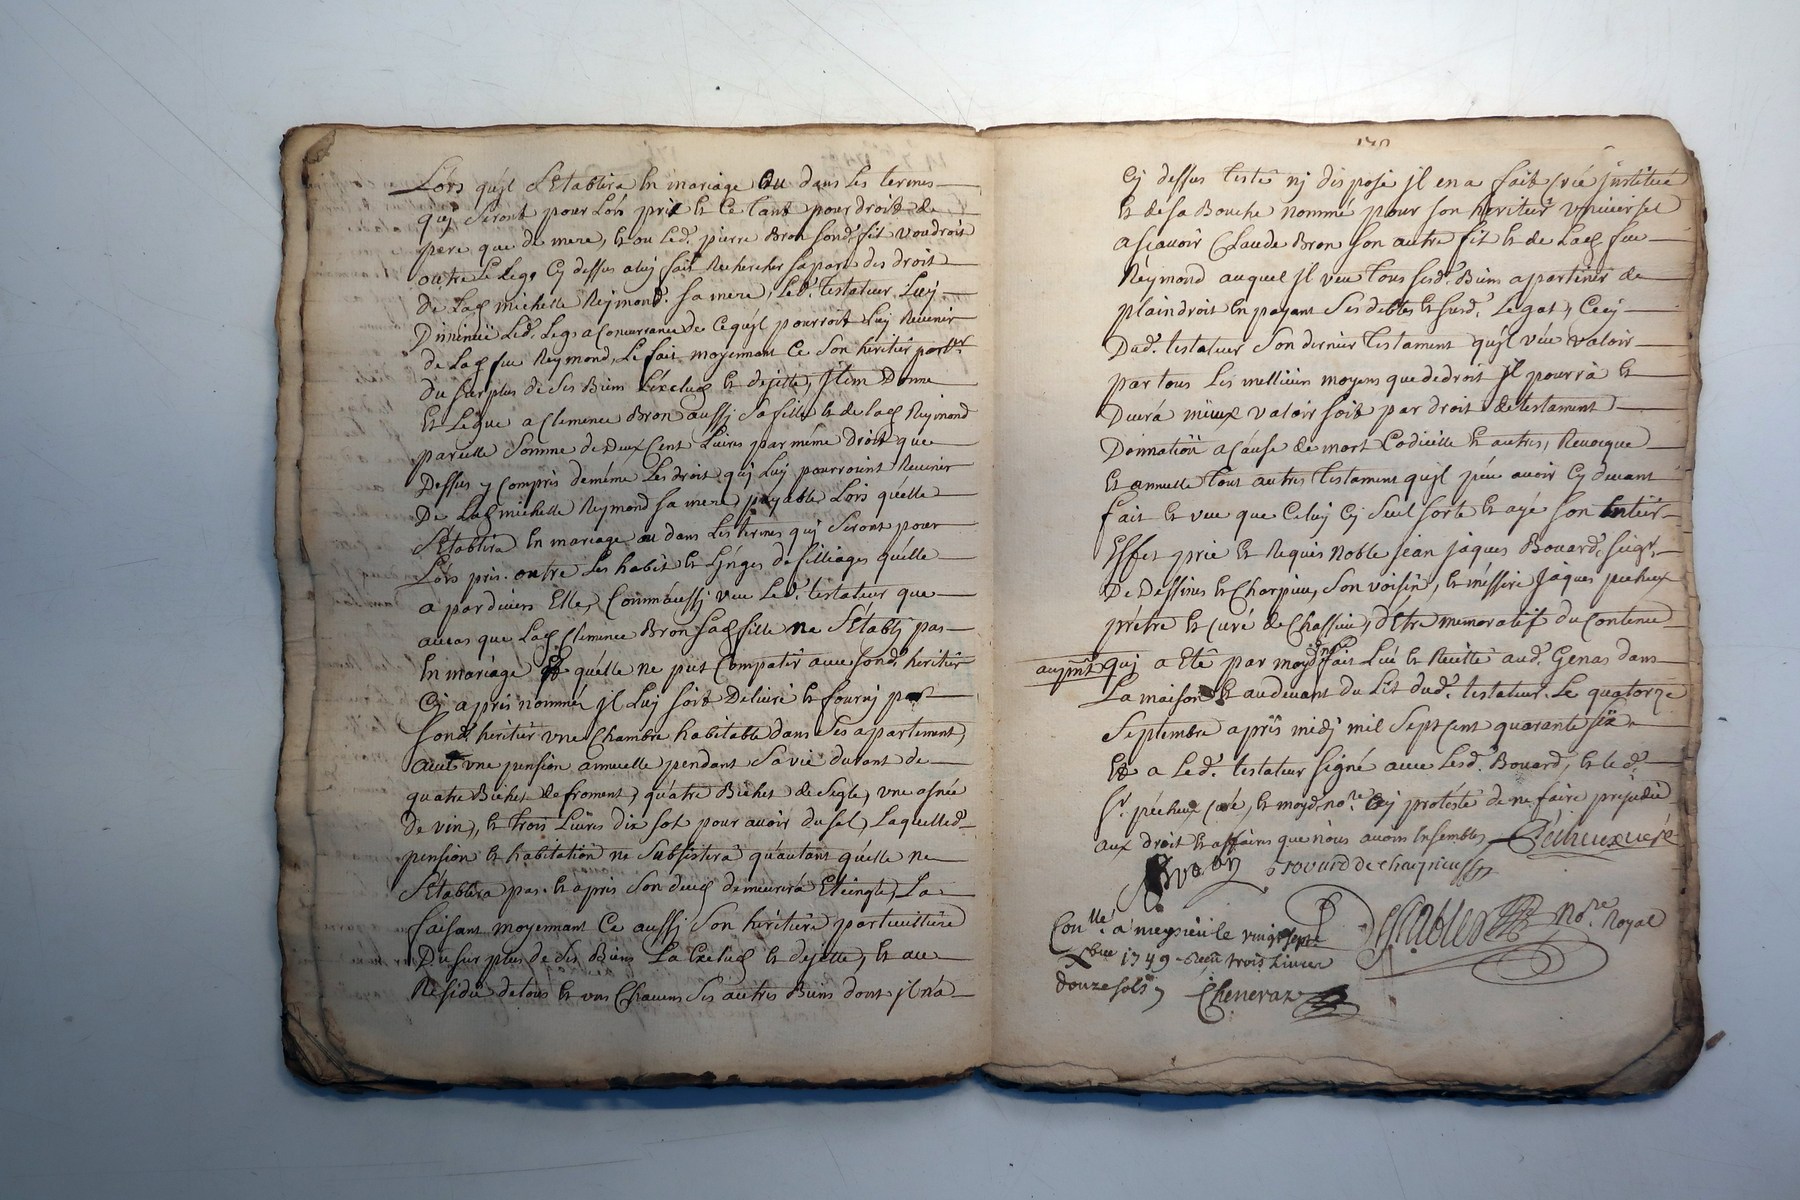 Lors quyl SEtablira En mariage Ou dans Les termes
quj Seront pour Lors pris Et Ce tant pour droit de
pere que de mere, Et ou Led. pierre Bron Sond. fil voudroit
outre Le legs Cy dessus a luy fait Rechercher sa part des droit
De Lad michelle Reymond. sa mere, Led. testateur Luy
Diminüe Led. Legs a Concurrance de Ce quyl pourroit Luy Revenir
de Lad feu Reymond, Le fait moyennant Ce Son heritier partier
du surplus de Ses Biens L'exclud Et dejette, Jtem Donne
Et Legue a Clemence Bron aussj Sa fille Et de lad Reymond
pareille Somme de Deux Cent Livres par même droit que
Dessus y Compris de même Les droit quj Luy pourroint Revenir
De Lad michelle Reymond sa mere payable Lors quelle
SEtablira En mariage ou dans Les termes quj Seront pour
Lors pris. outre Les habit Et Linges de filliages quelle
a par divers Elle, Comm'aussj veu Led. testateur que
aucas que Lad Clemence Bron sad fille ne SEtabli pas
En mariage Et quelle ne put Compatir avec sond. heritier
Cy apres nommé, jl Luy soit Delivré Et fourny par
Sond. heritier vne Chambre habitable dans Ses apartement,
avec vne pension annuelle pendant Sa vie durant de
quatre Bichet de froment, quatre Bichet de Segle, vne asnée
de vin, Et trois Livres dix sol pour avoir du sel, Laquelled.
pension Et habitation ne Subsistera qu'autant quelle ne
SEtablira pas. Et apres Son deced demeurera Eteingte, La
faisant moyennant Ce aussj Son heritiere particuilliere
Du surplus de Ses Biens La Exclud Et dejette, Et au
Residu de tous Et vns Chacuns Ses autres Biens dont jl n'a
Cy dessus testé nj disposé jl en a fait Créé justitué
Et de sa Bouche nommé pour son heritier vniversel
ascavoir Claude Bron Son autre fil Et de Lad feue
Reymond auquel jl veu tous sesd. Biens apartenir de
plain droit En payant Ses debtes Et susd. Legat, Cecy
Dud. testateur Son dernier testament quyl veu valoir
par tous Les mellieurs moyens que de droit jl pourra Et
Devra mieux valoir soit par droit de testament
Donnation a cause de mort Codicille Et autres, Revocque
Et annulle tout autres testament quyl peu avoir Cy devant
fait Et veu que Celuy Cy Seul sorte Et aye son Entier
Effet prie Et Requis Noble jean jaques Bouard, Seigr.
De Dessines Et Charpieu, Son voisin, Et messire Jaques pecheux
prêtre Et curé de Chassieu, d'Etre memoratif du Contenu
au pnt quj a Eté par moyd. nre fait Lüe Et Recitté aud. Genas dans
La maison Et audevant du Lit dud. testateur. Le quatorze
Septembre apres midj mil Sept Cent quarante six
Et a Led. testateur signé avec Lesd. Bouard, Et led.
Sr. pecheux Curé, Et moyd. nore. Cy protesté de ne faire prejudice
aux droit Et affaires que nous avons Ensembles, Pécheux curé
Bron Bouard de Charpieu
Desrables Nore. Royal
Conllé. a meysieu le vingt sept
Xbre 1749 Reçu trois Livres
douze sols Cheneraz